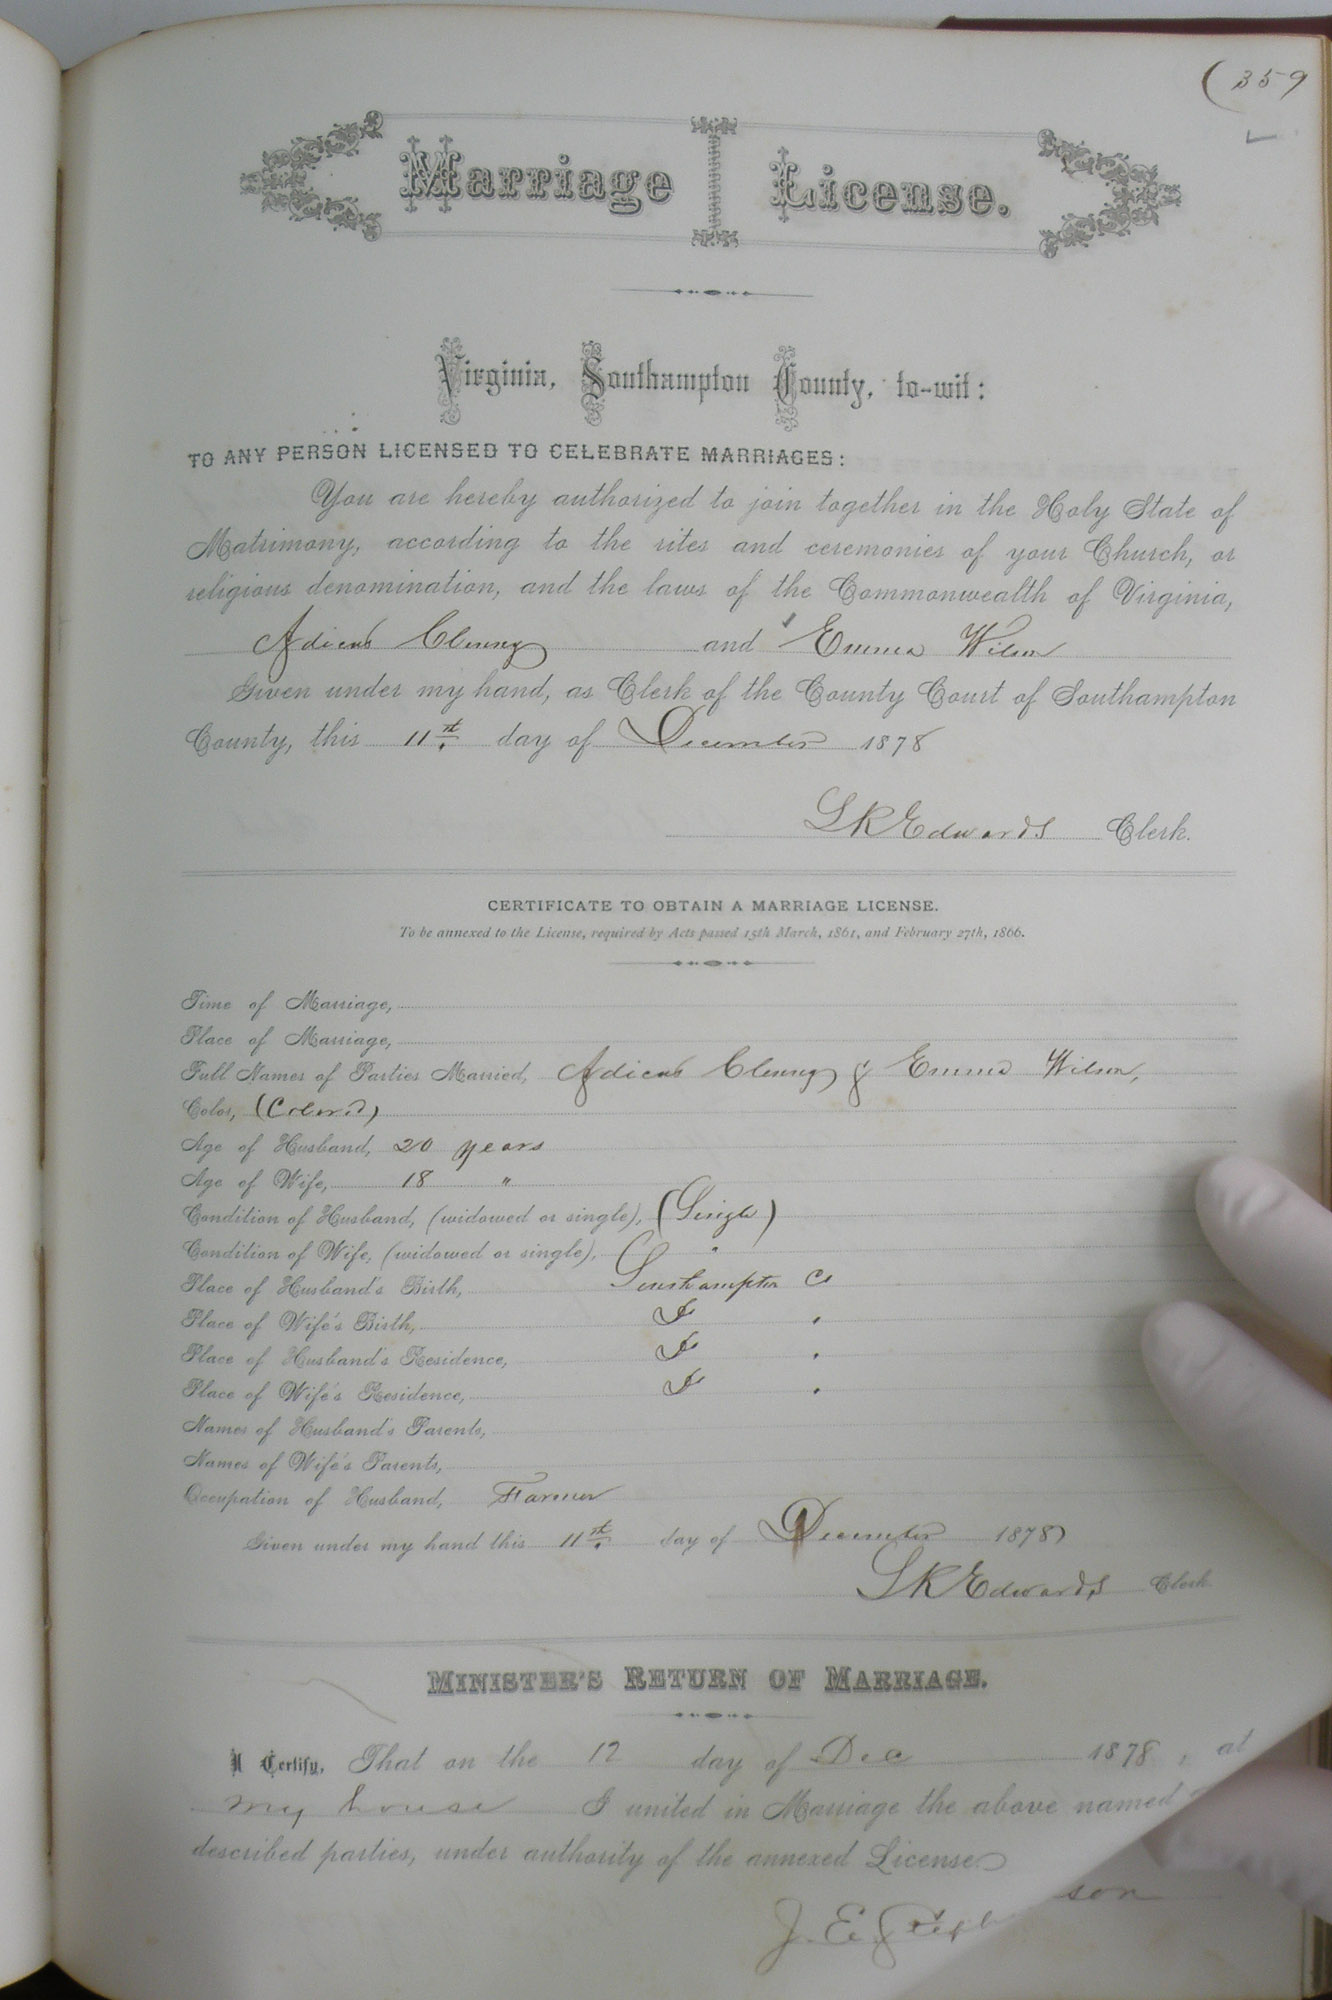 (359
Marriage License.
Virginia, Southampton County, to-wit:
TO ANY PERSON LICENSED TO CELEBRATE MARRIAGES:
You are hereby authorized to join together in the Holy State of
Matrimony, according to the rites and ceremonies of your Church, or
religious denomination, and the laws of the Commonwealth of Virginia,
and Emma Wilson
Given under my hand, as Clerk of the County Court of Southampton
County, this 11st. day of December 1878
L R Edwards Clerk.
CERTIFICATE TO OBTAIN A MARRIAGE LICENSE.
To be annexed to the License, required by Acts passed 15th March, 1861, and February 27th, 1866.
Time of Marriage,
Place of Marriage,
Full Names of Parties Married, & Emma Wilson,
Color, (Colored)
Age of Husband, 20 years
Age of Wife, 18 "
Condition of Husband, (widowed or single), (Single)
Condition of Wife, (widowed or single), "
Place of Husband's Birth, Southampton Co
Place of Wife's Birth,
Place of Husband's Residence,
Place of Wife's Residence,
Names of Husband's Parents,
Names of Wife's Parents,
Occupation of Husband, Farmer
Given under my hand this 11st. day of December 1878
L R Edwards Clerk
MINISTER'S RETURN OF MARRIAGE.
I Certify, That on the 12 day of Dec 1878, at
my house I united in Marriage the above named
described parties, under authority of the annexed License
J. E.